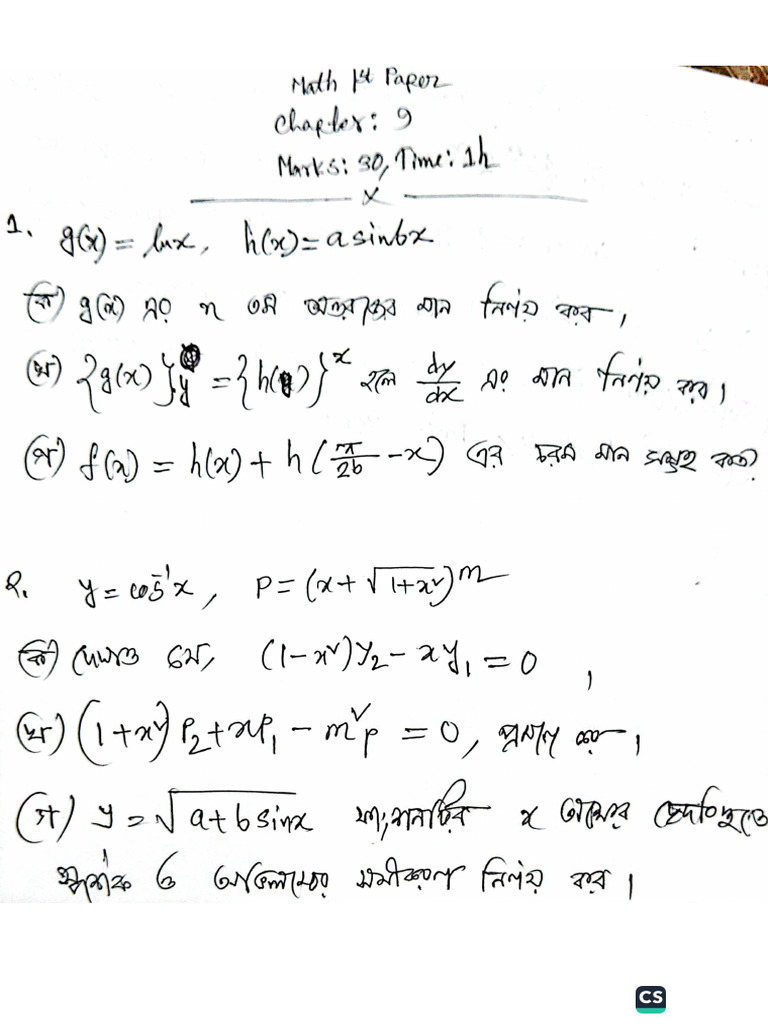 Math 1st Paper
Chapter: 9
Marks: 30, Time: 1h
x
1. g(x) = lnx, h(x) = a sinbx
(ক) g(x) এর n তম অন্তরজের মান নির্ণয় কর।
(খ) {g(x)}^y = {h(y)}^x হলে dy/dx এর মান নির্ণয় কর।
(গ) f(x) = h(x) + h(π/2b - x) এর চরম মান সমূহ কত?
২. y = cos⁻¹x, P = (x + √(1+x²))^m
(ক) দেখাও যে, (1-x²)y₂ - xy₁ = 0,
(খ) (1+x²)P₂ + xP₁ - m²p = 0, প্রমাণ কর।
(গ) y = √(a+b sinx) ফাংশনটির x অক্ষের ছেদবিন্দুতে
স্পর্শক ও অভিলম্বের সমীকরণ নির্ণয় কর।
CS